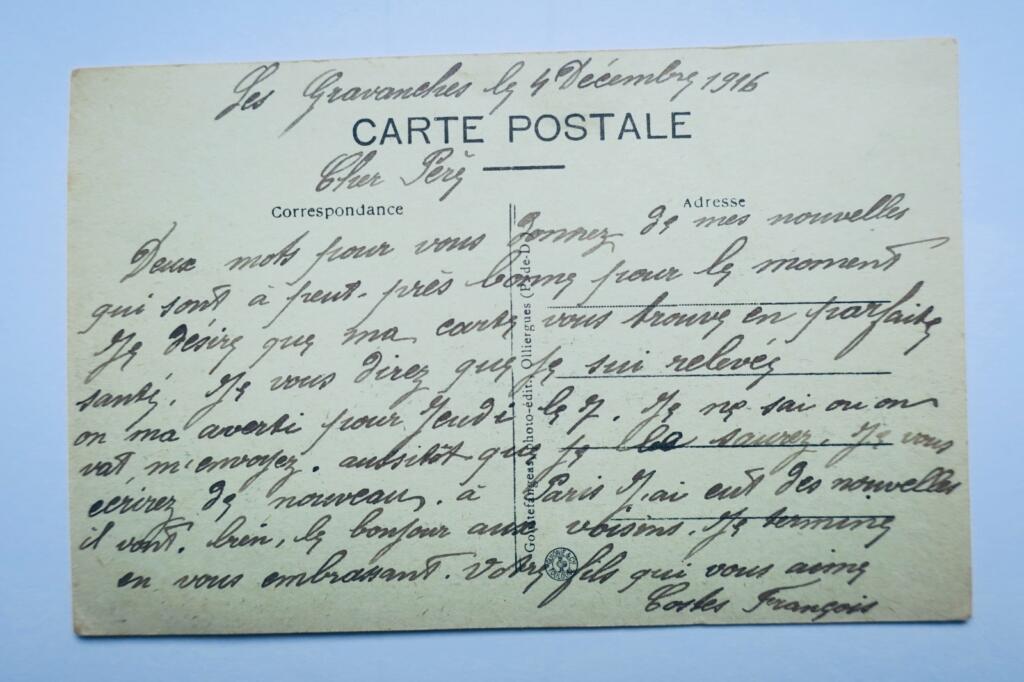 Les Gravanches le 4 Décembre 1916
CARTE POSTALE
Cher Père
Correspondance
Adresse
Deux mots pour vous donnez de mes nouvelles
qui sont à peut-près bonne pour le moment
Je désire que ma carte vous trouve en parfaite
santé. Je vous direz que je sui relevée
on ma averti pour Jeudi le 7. Je ne sai ou on
vat m'envoyez. aussitôt que je la saurez. Je vous
écrirez de nouveau. à Paris J'ai eut des nouvelles
il vont. bien, le bonjour aux voisins. Je termine
en vous embrassant. Votre fils qui vous aime
Costes François
photo-édit., Olliergues (P.-de-D